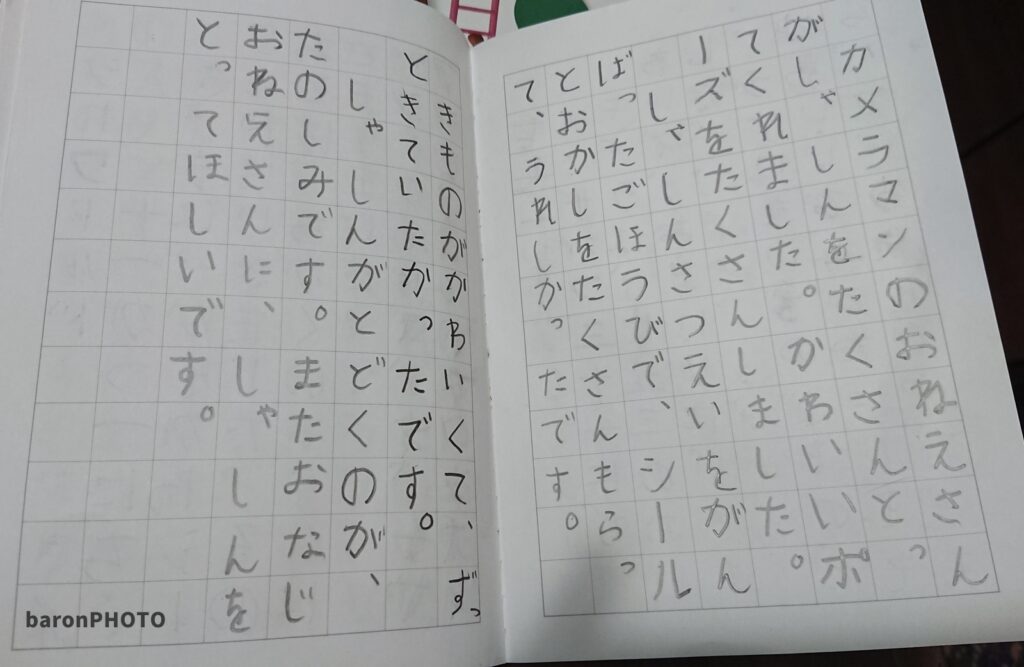 カメラマンのおねえさん
がしゃしんをたくさんとっ
てくれました。かわいいポ
ーズをたくさんしました。
しゃしんさつえいをがん
ばったごほうびで、シール
とおかしをたくさんもらっ
て、うれしかったです。
きものがかわいくて、ずっ
ときていたかったです。
しゃしんがとどくのが、
たのしみです。またおなじ
おねえさんに、しゃしんを
とってほしいです。
baronPHOTO